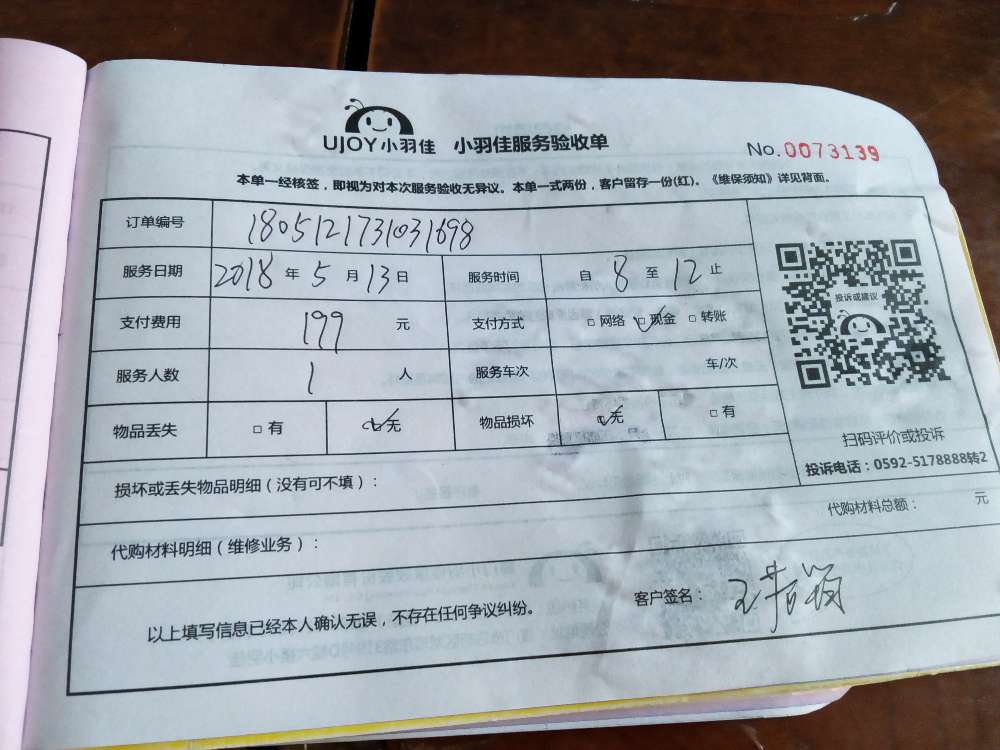 UJOY小羽佳 小羽佳服务验收单 No.0073139
本单一经核签，即视为对本次服务验收无异议。本单一式两份，客户留存一份(红)。《维保须知》详见背面。
订单编号 1805121731031698
服务日期 2018 年 5 月 13 日 服务时间 自 8 至 12 止
支付费用 199 元 支付方式 □ 网络 ☑ 现金 □ 转账
服务人数 1 人 服务车次 车/次
物品丢失 □ 有 ☑ 无 物品损坏 ☑ 无 □ 有
投诉或建议
扫码评价或投诉
投诉电话：0592-5178888转2
损坏或丢失物品明细（没有可不填）：
代购材料总额： 元
代购材料明细（维修业务）：
客户签名： 王
以上填写信息已经本人确认无误，不存在任何争议纠纷。